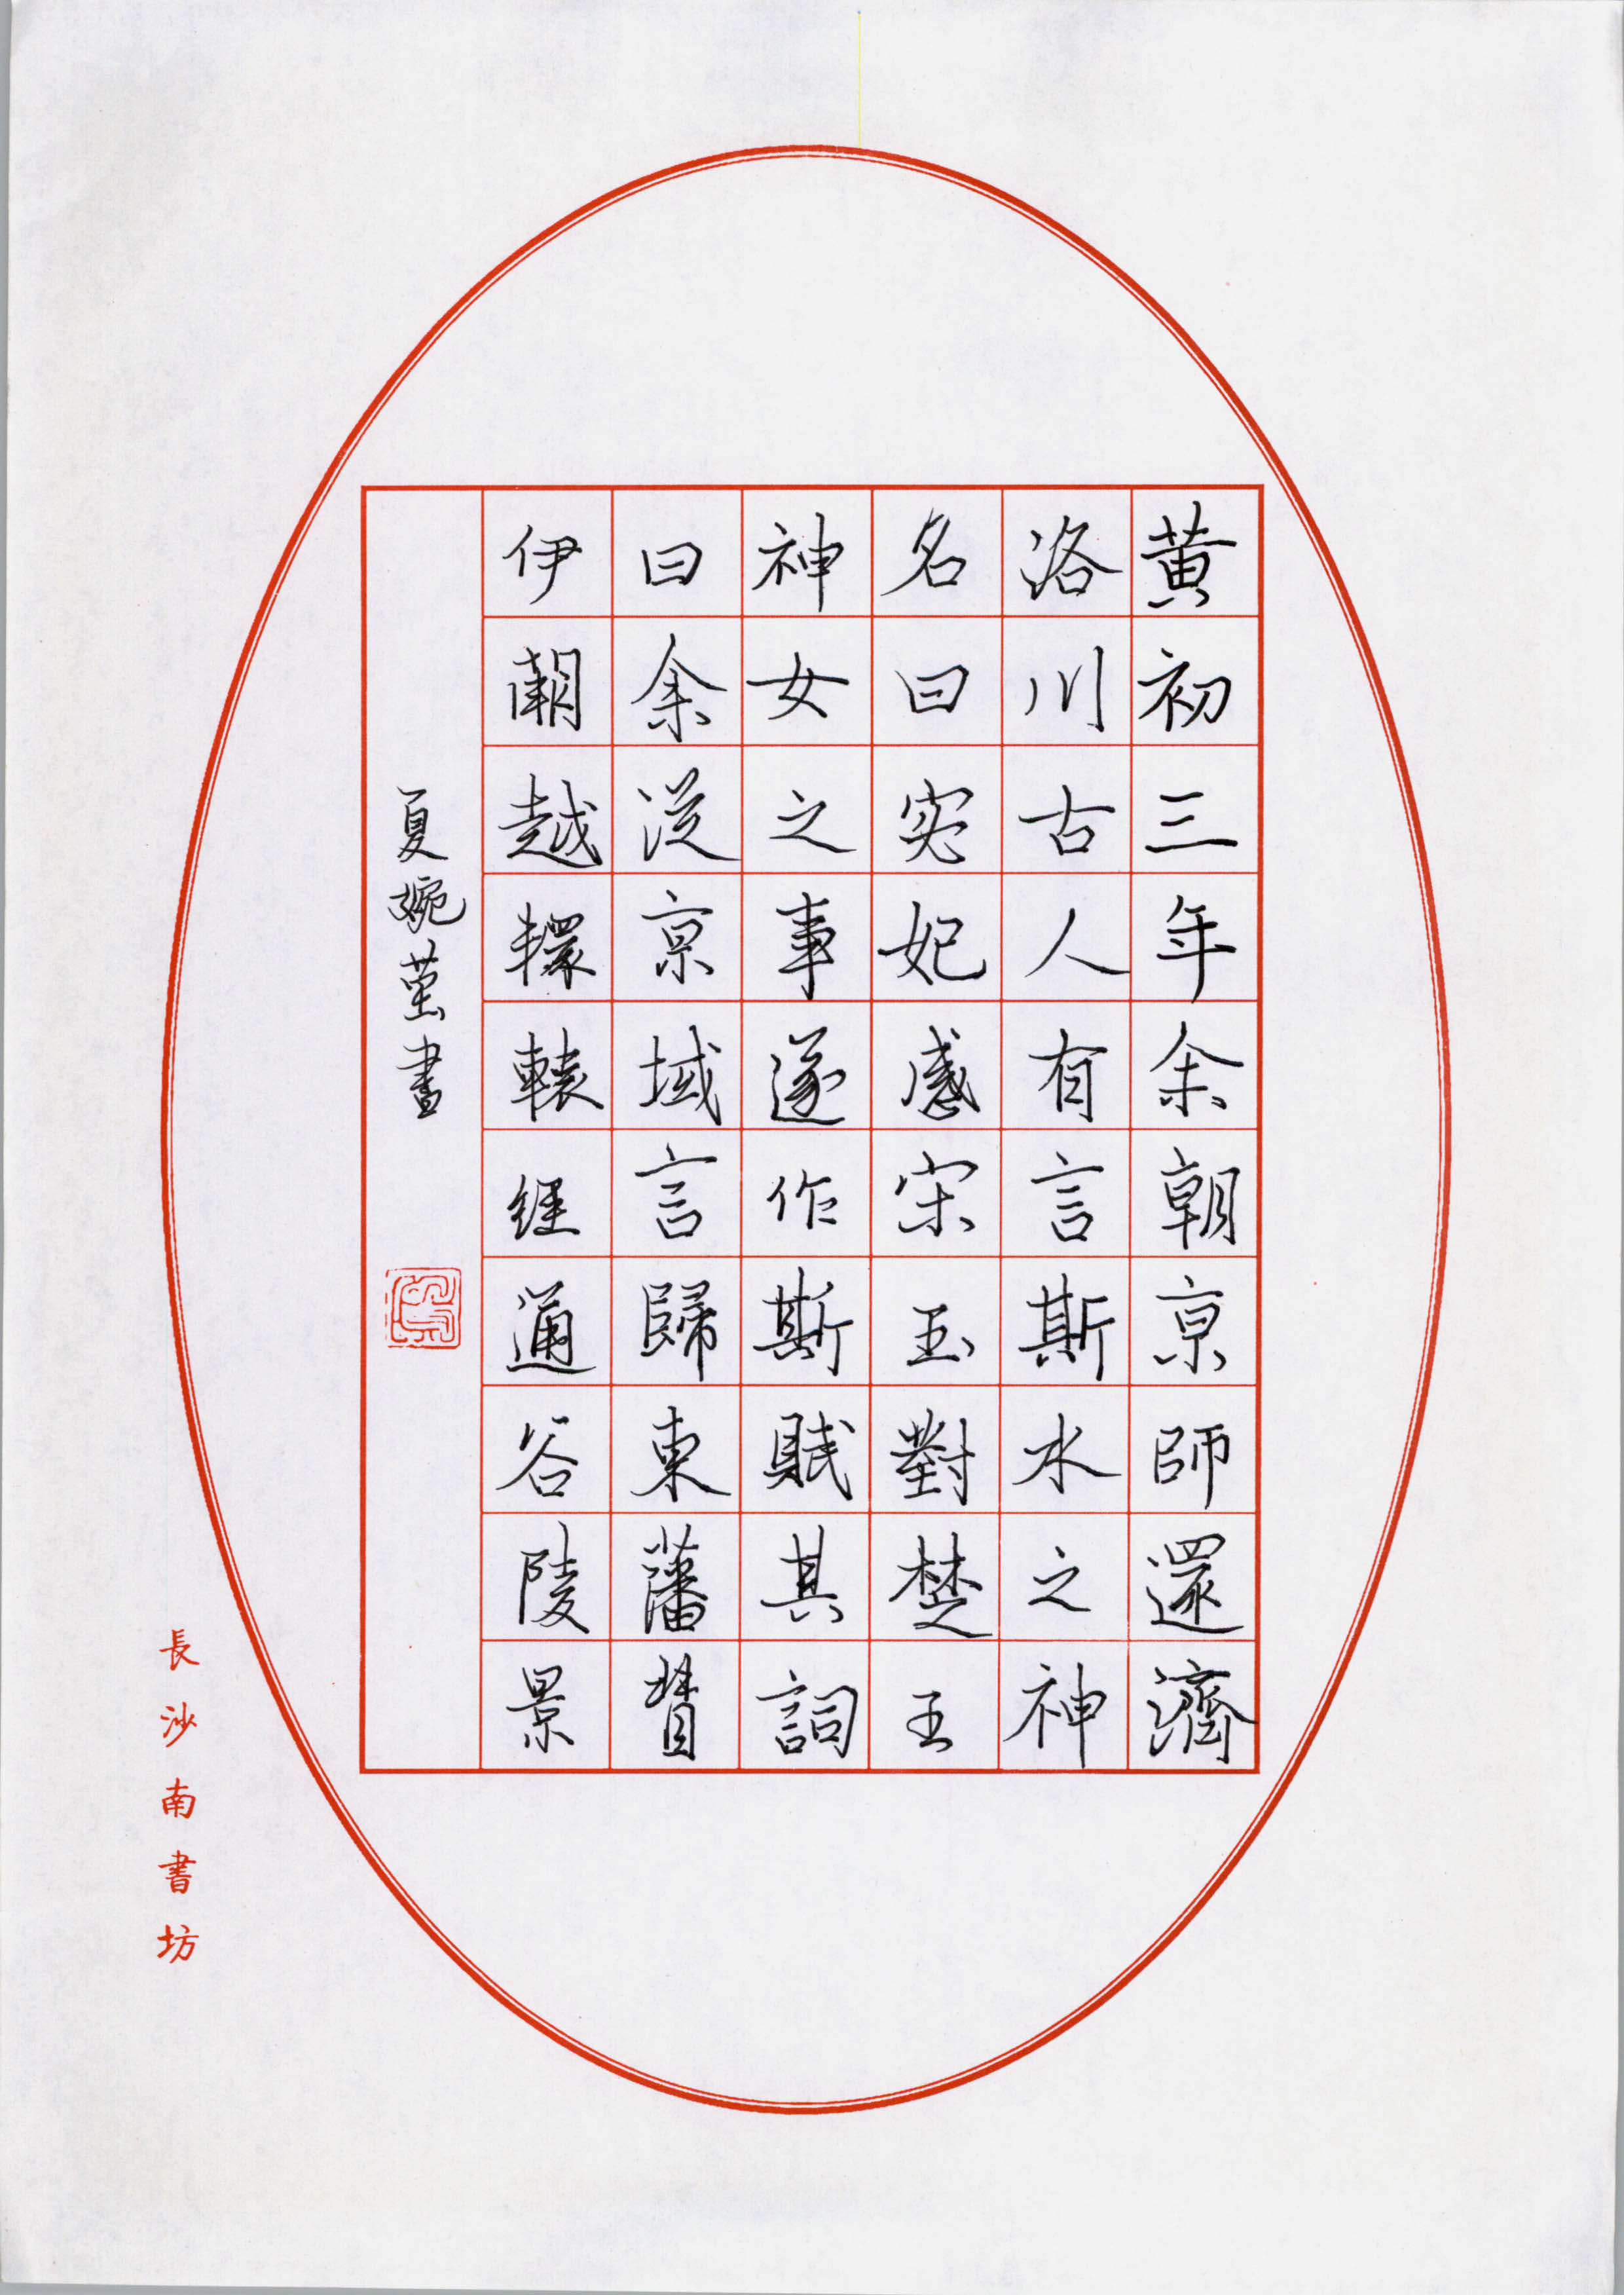 黄初三年余朝京師還濟
洛川古人有言斯水之神
名曰宓妃感宋玉對楚王
神女之事遂作斯賦其詞
曰余從京域言歸東藩背
伊闕越轘轅經通谷陵景
夏婉堇書
長沙南書坊